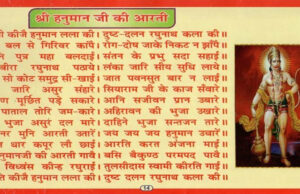 श्री हनुमान जी की आरती
की कीजै हनुमान लला की। दुष्ट-दलन रघुनाथ कला की॥
बल से गिरिवर काँपै। रोग-दोष जाके निकट न झाँपै॥
पुत्र महा बलदाई। संतन के प्रभु सदा सहाई॥
बीरा रघुनाथ पठाये। लंका जारि सीय सुधि लाये॥
सो कोट समुद्र सी-खाई। जात पवनसुत बार न लाई॥
जारि असुर संहारे। सियाराम जी के काज सँवारे॥
ण मूर्छित पड़े सकारे। आनि सजीवन प्रान उबारे॥
पाताल तोरि जम-कारे। अहिरावन की भुजा उखारे॥
भुजा असुर दल मारे। दाहिने भुजा सन्तजन तारे॥
नर मुनि आरती उतारें। जय जय जय हनुमान उचारें॥
थार कपूर लौ छाई। आरति करत अंजना माई॥
हनुमानजी की आरती गावै। बसि बैकुण्ठ परमपद पावै॥
विध्वंस कीन्ह रघुराई। तुलसीदास स्वामी कीरति गाई॥
की कीजै हनुमान लला की। दुष्ट दलन रघुनाथ कला की॥